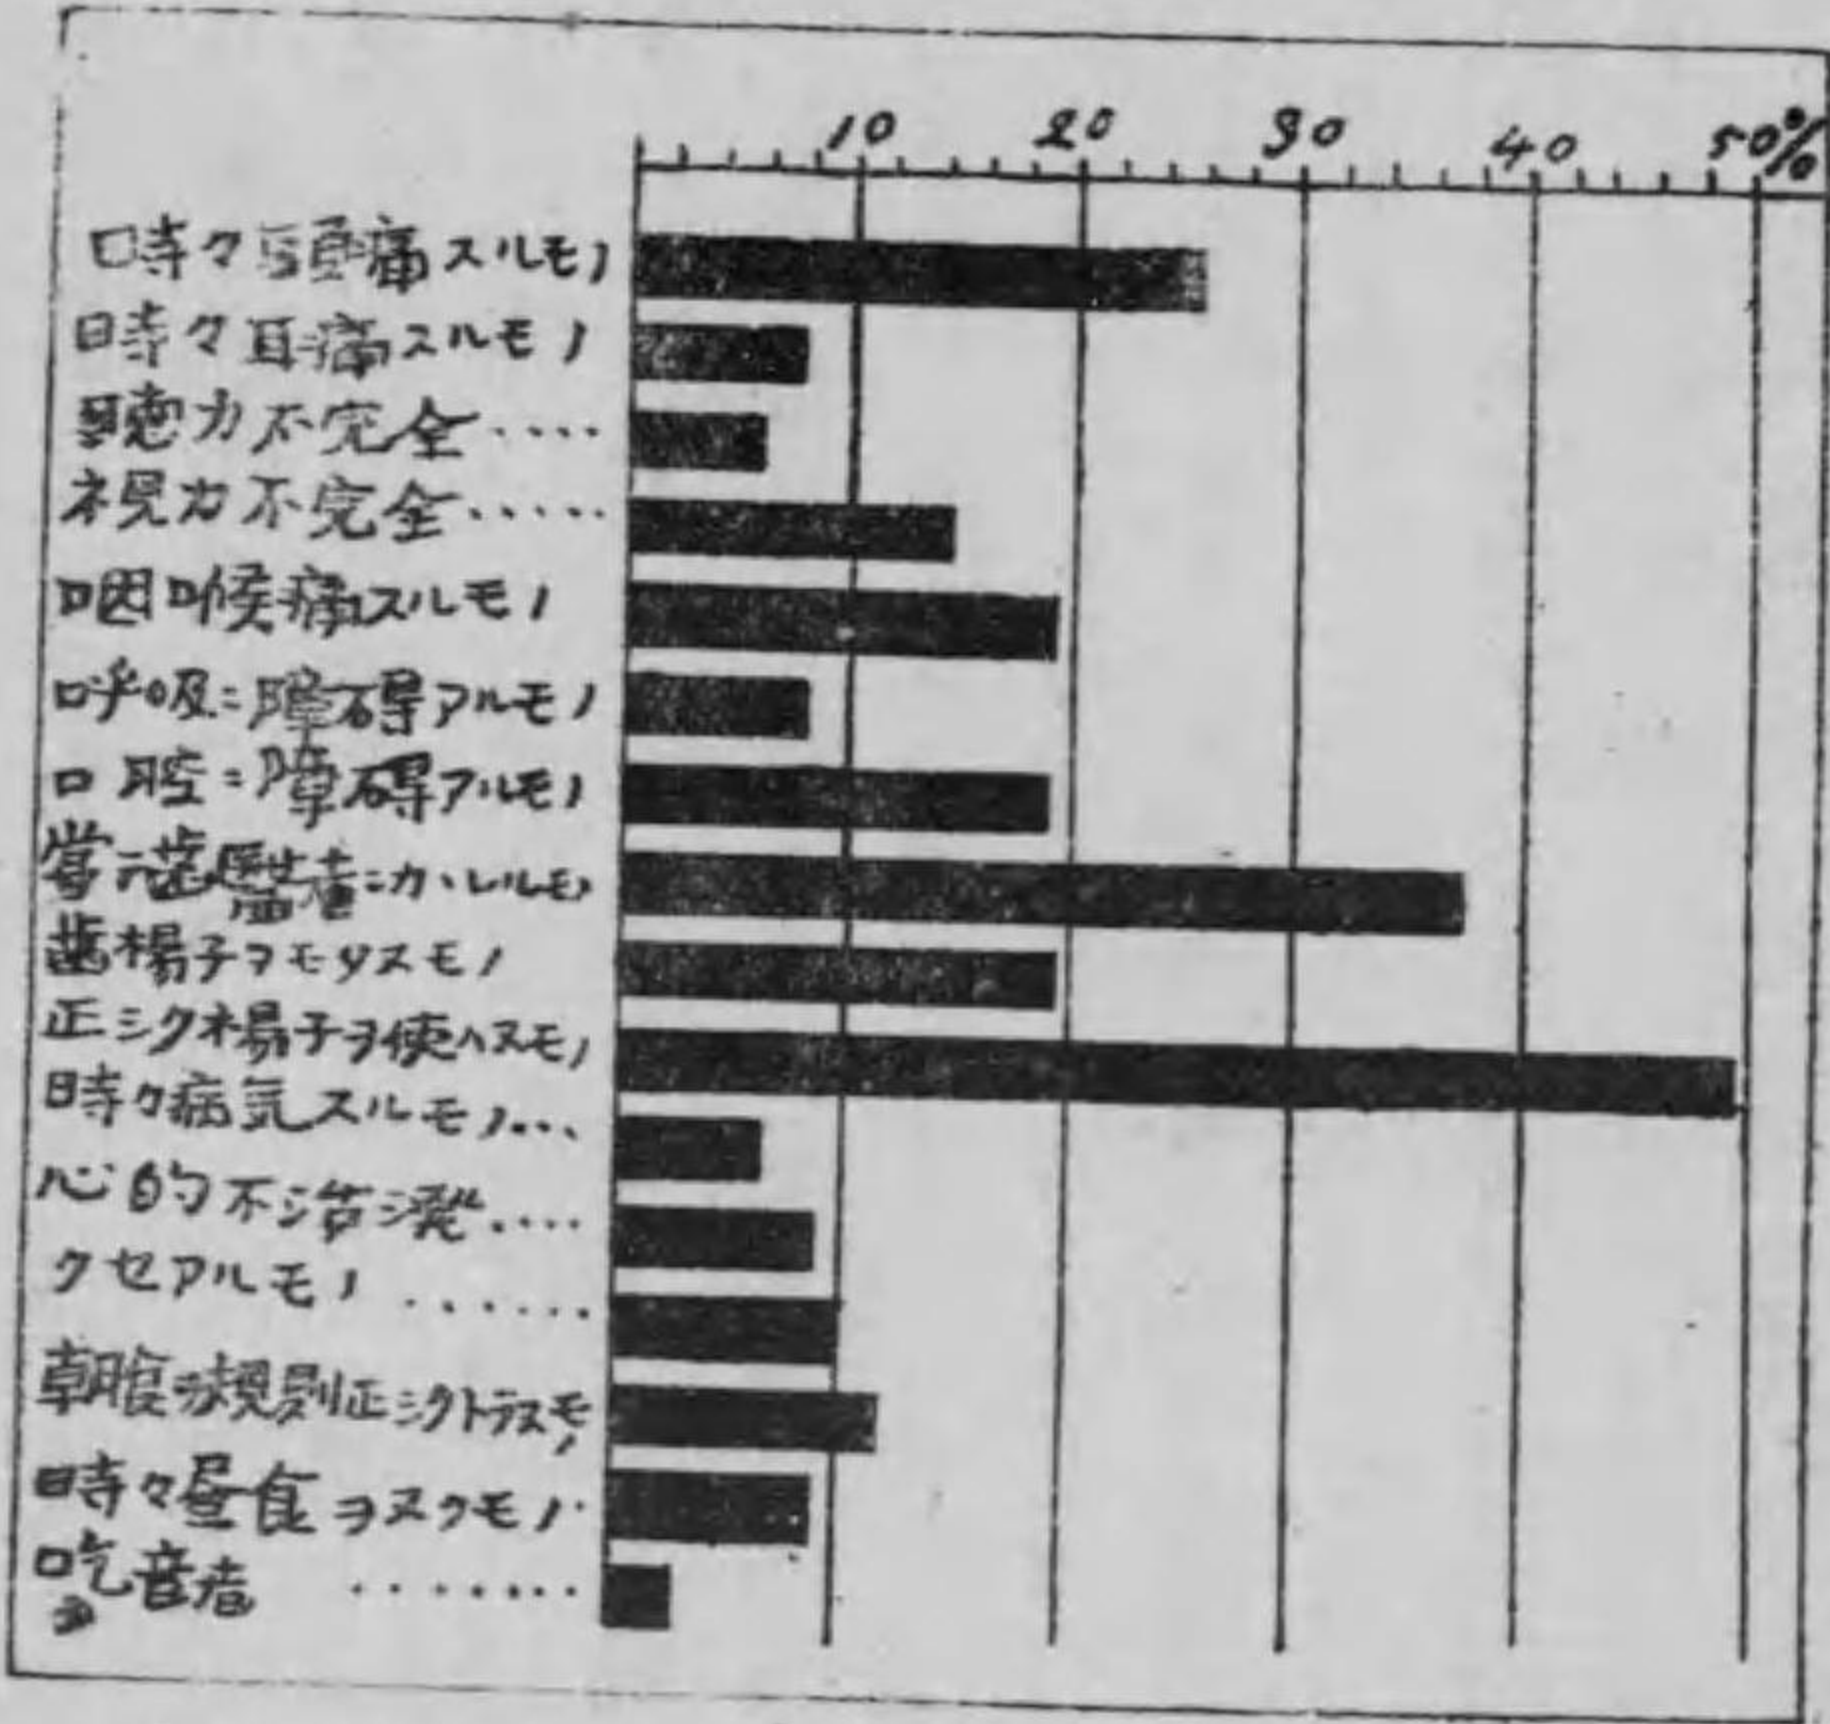 10 20 30 40 50%
時々頭痛スルモノ
時々耳痛スルモノ
聽力不完全····
視力不完全·····
咽喉痛スルモノ
呼吸ニ障碍アルモノ
口腔ニ障碍アルモノ
常ニ歯醫者ニカヽルモノ
歯楊子ヲモタヌモノ
正シク楊子ヲ使ハヌモノ
時々病気スルモノ···
心的不活溌····
クセアルモノ ······
朝飯ヲ規則正シクトラヌモノ
時々昼食ヲヌクモノ·
吃音者 ·······